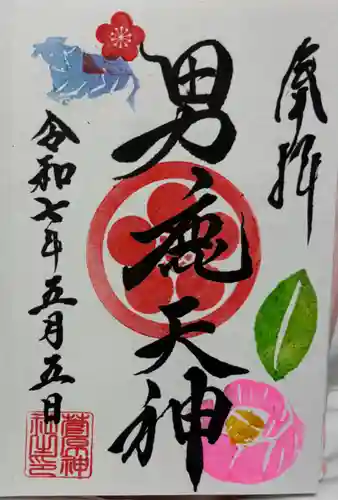 奉拝
男鹿天神
令和七年五月五日
菅神社之印